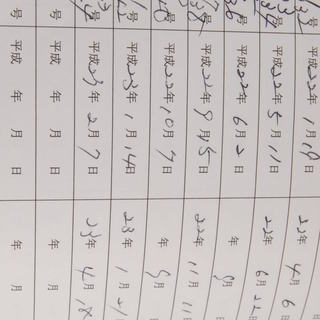 号 平成22年1月19日 22年4月6
号 平成22年5月11日 22年6月22
号 平成22年6月2日 年 月
号 平成22年9月15日 22年11月11
号 平成22年10月7日 年 月
号 平成23年1月14日 23年1月21
号 平成23年2月7日 23年4月18
号 平成 年 月 日 年 月
号 平成 年 月 日 年 月